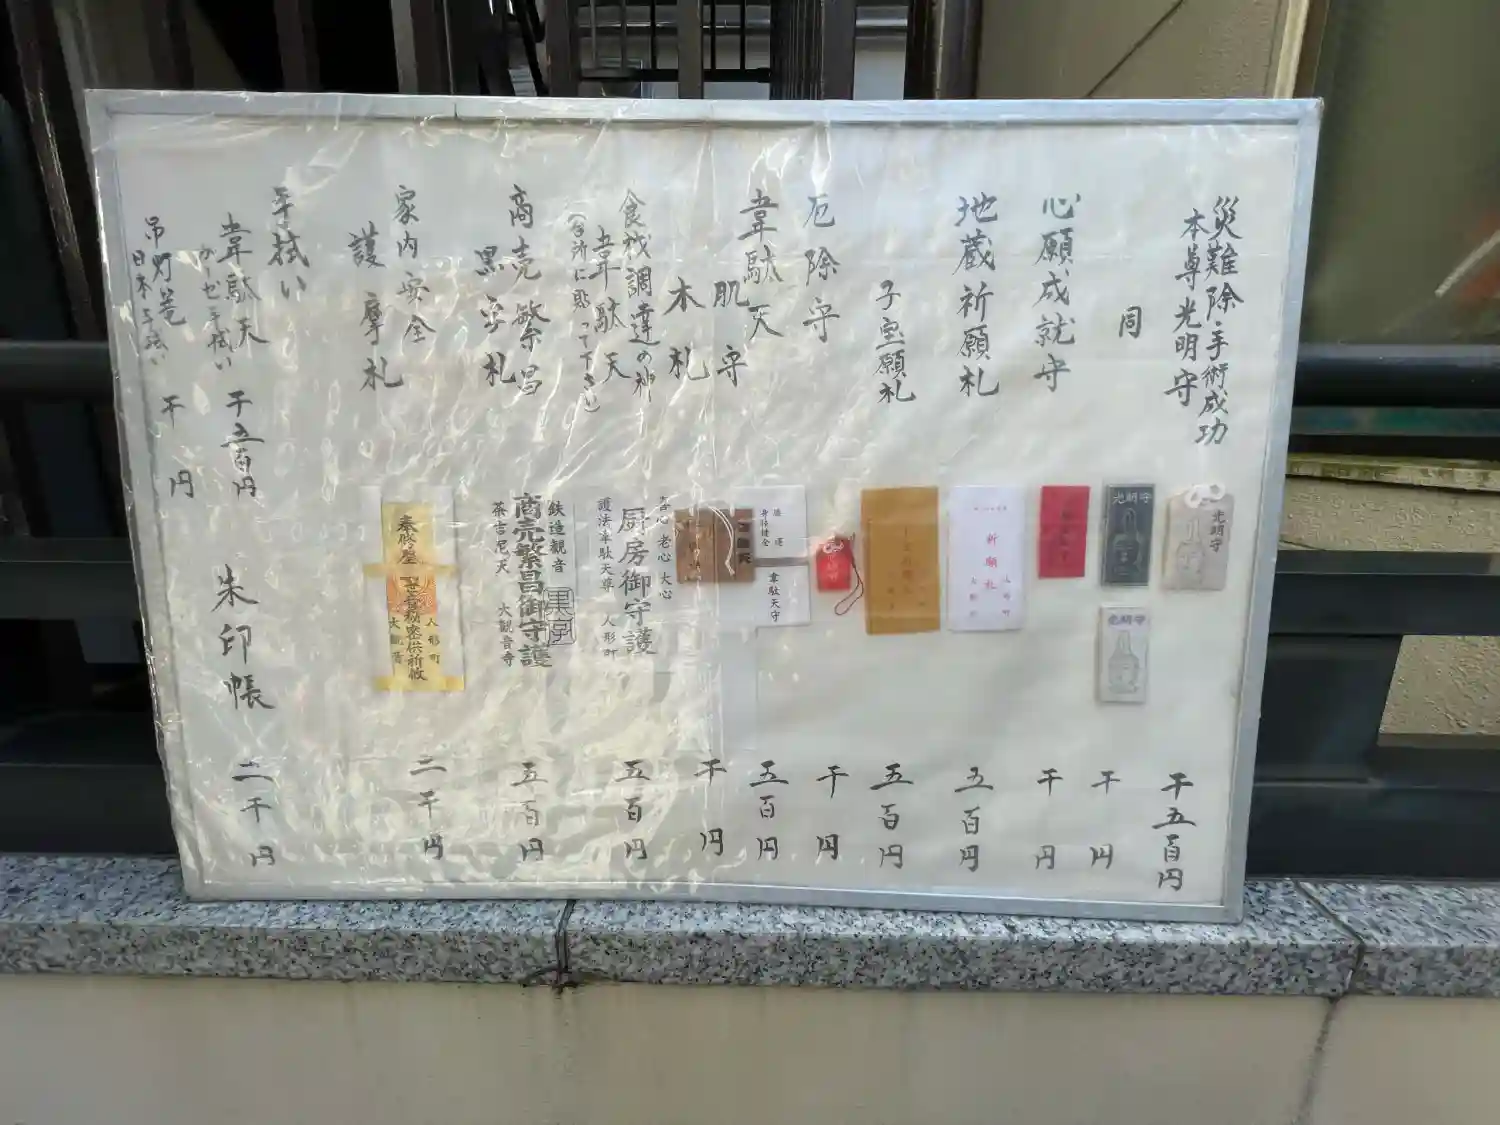 災難除・手術成功
本尊光明守
千五百円
同
千円
心願成就守
千円
地蔵祈願札
五百円
子宝願札
五百円
厄除守
千円
韋駄天
肌守
五百円
木札
千円
食材調達の神
韋駄天
(台所に貼って下さい)
五百円
商売繁昌
黒字札
五百円
家内安全
護摩札
二千円
手拭い
韋駄天
がーぜ手拭い
千五百円
吊灯篭
日本手拭い
千円
朱印帳
二千円
光明守
光明守
光明守
祈願札
人形町
身体健全
韋駄天守
喜心 老心 大心
厨房御守護
護法韋駄天尊 人形町
鉄造観音
黒字
商売繁昌御守護
茶吉尼天 大観音寺
人形町
大観音